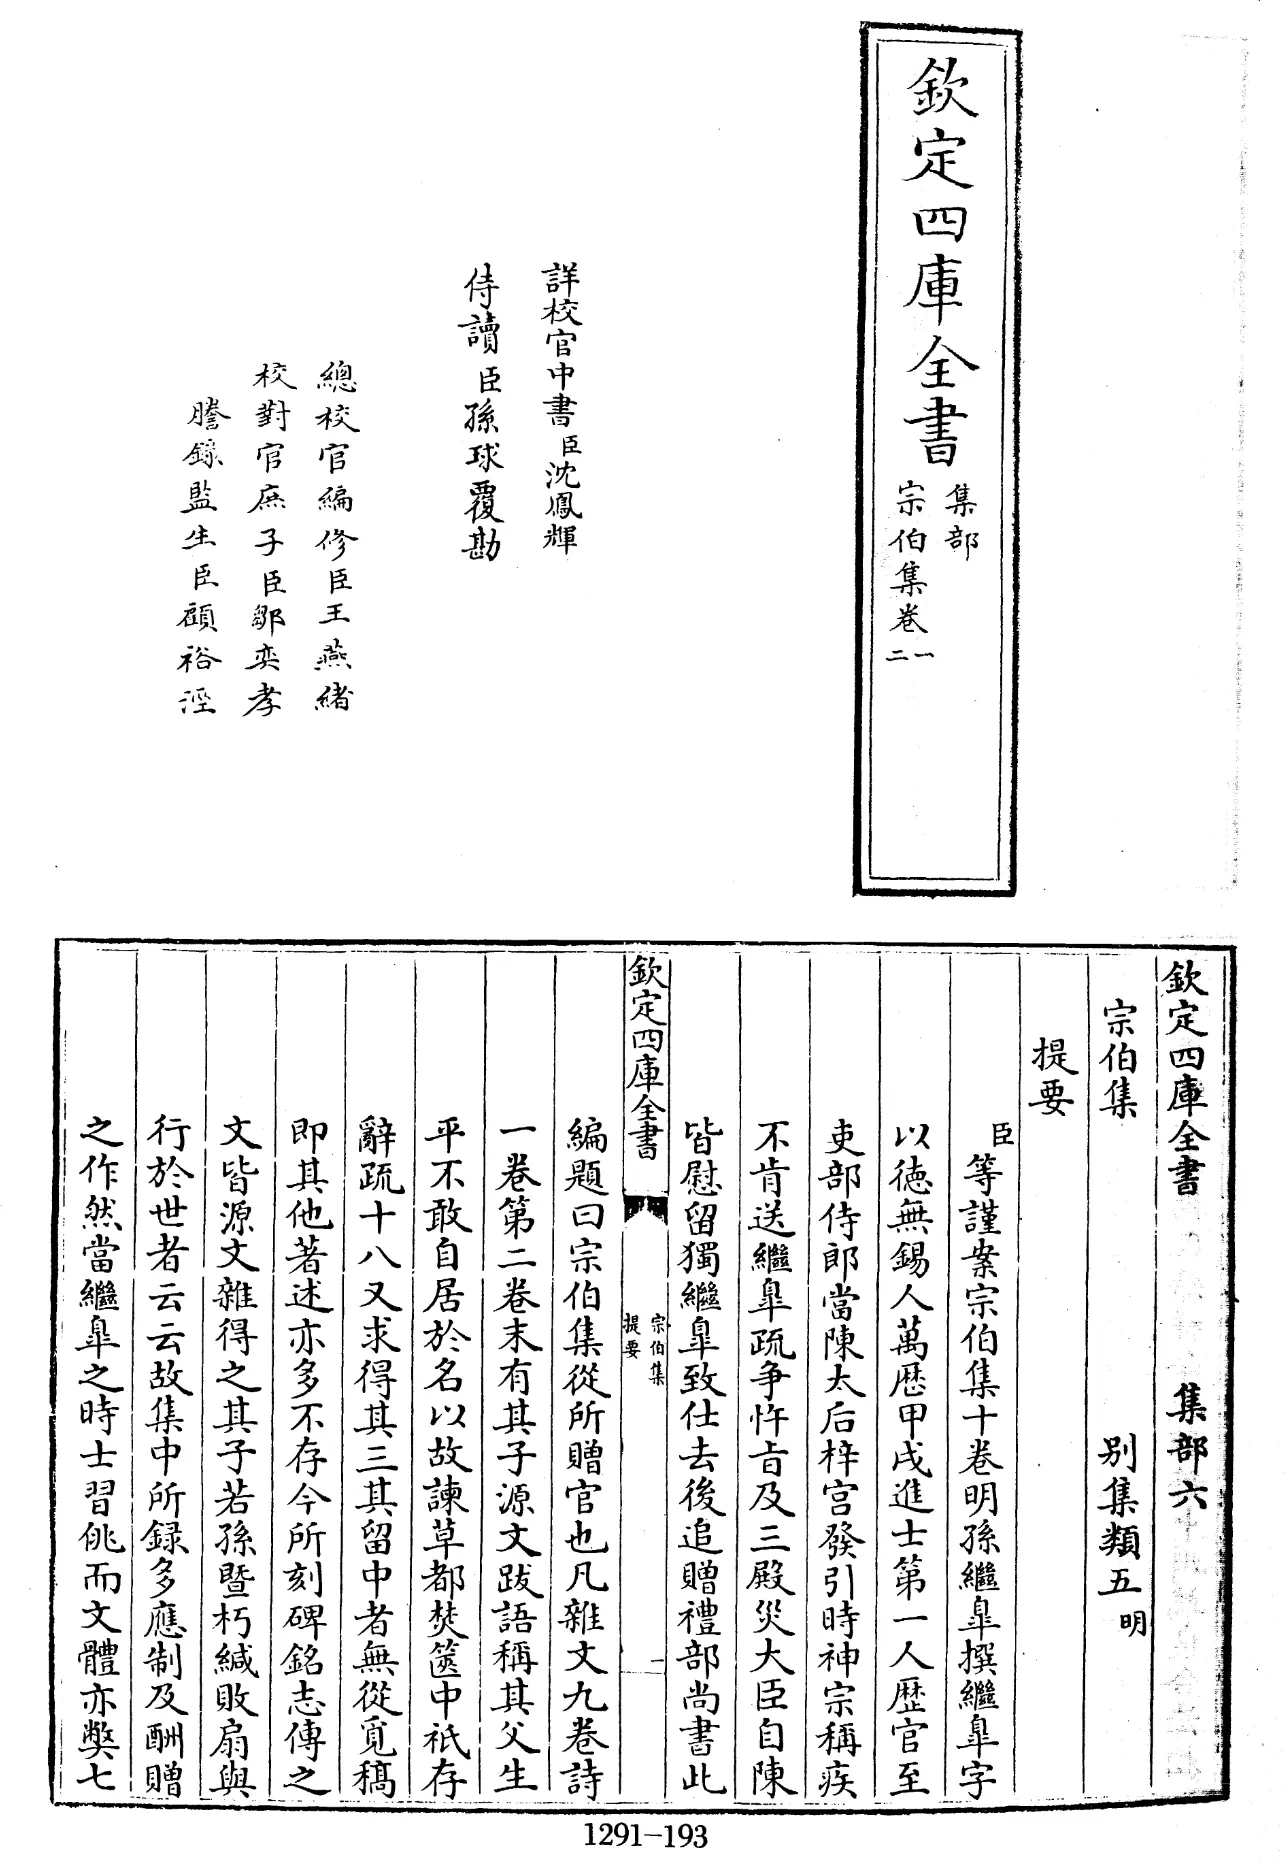 欽定四庫全書
集部
宗伯集卷一
二
詳校官中書臣沈鳳輝
侍讀臣孫球覆勘
總校官編修臣王燕緒
校對官庶子臣鄒奕孝
謄錄監生臣顧裕涇
欽定四庫全書 集部六
宗伯集 別集類五明
提要
臣等謹案宗伯集十卷明孫繼臯撰繼臯字
以徳無錫人萬厯甲戌進士第一人歴官至
吏部侍郎當陳太后梓宫發引時神宗稱疾
不肯送繼臯疏争忤㫖及三殿災大臣自陳
皆慰留獨繼臯致仕去後追贈禮部尚書此
欽定四庫全書
宗伯集
提要
一
編題曰宗伯集從所贈官也凡雜文九卷詩
一卷第二卷末有其子源文跋語稱其父生
平不敢自居於名以故諫草都焚篋中祇存
辭疏十八又求得其三其留中者無從覓稿
即其他著述亦多不存今所刻碑銘志傳之
文皆源文雜得之其子若孫暨朽緘敗扇與
行於世者云云故集中所録多應制及酬贈
之作然當繼臯之時士習佻而文體亦弊七
1291-193